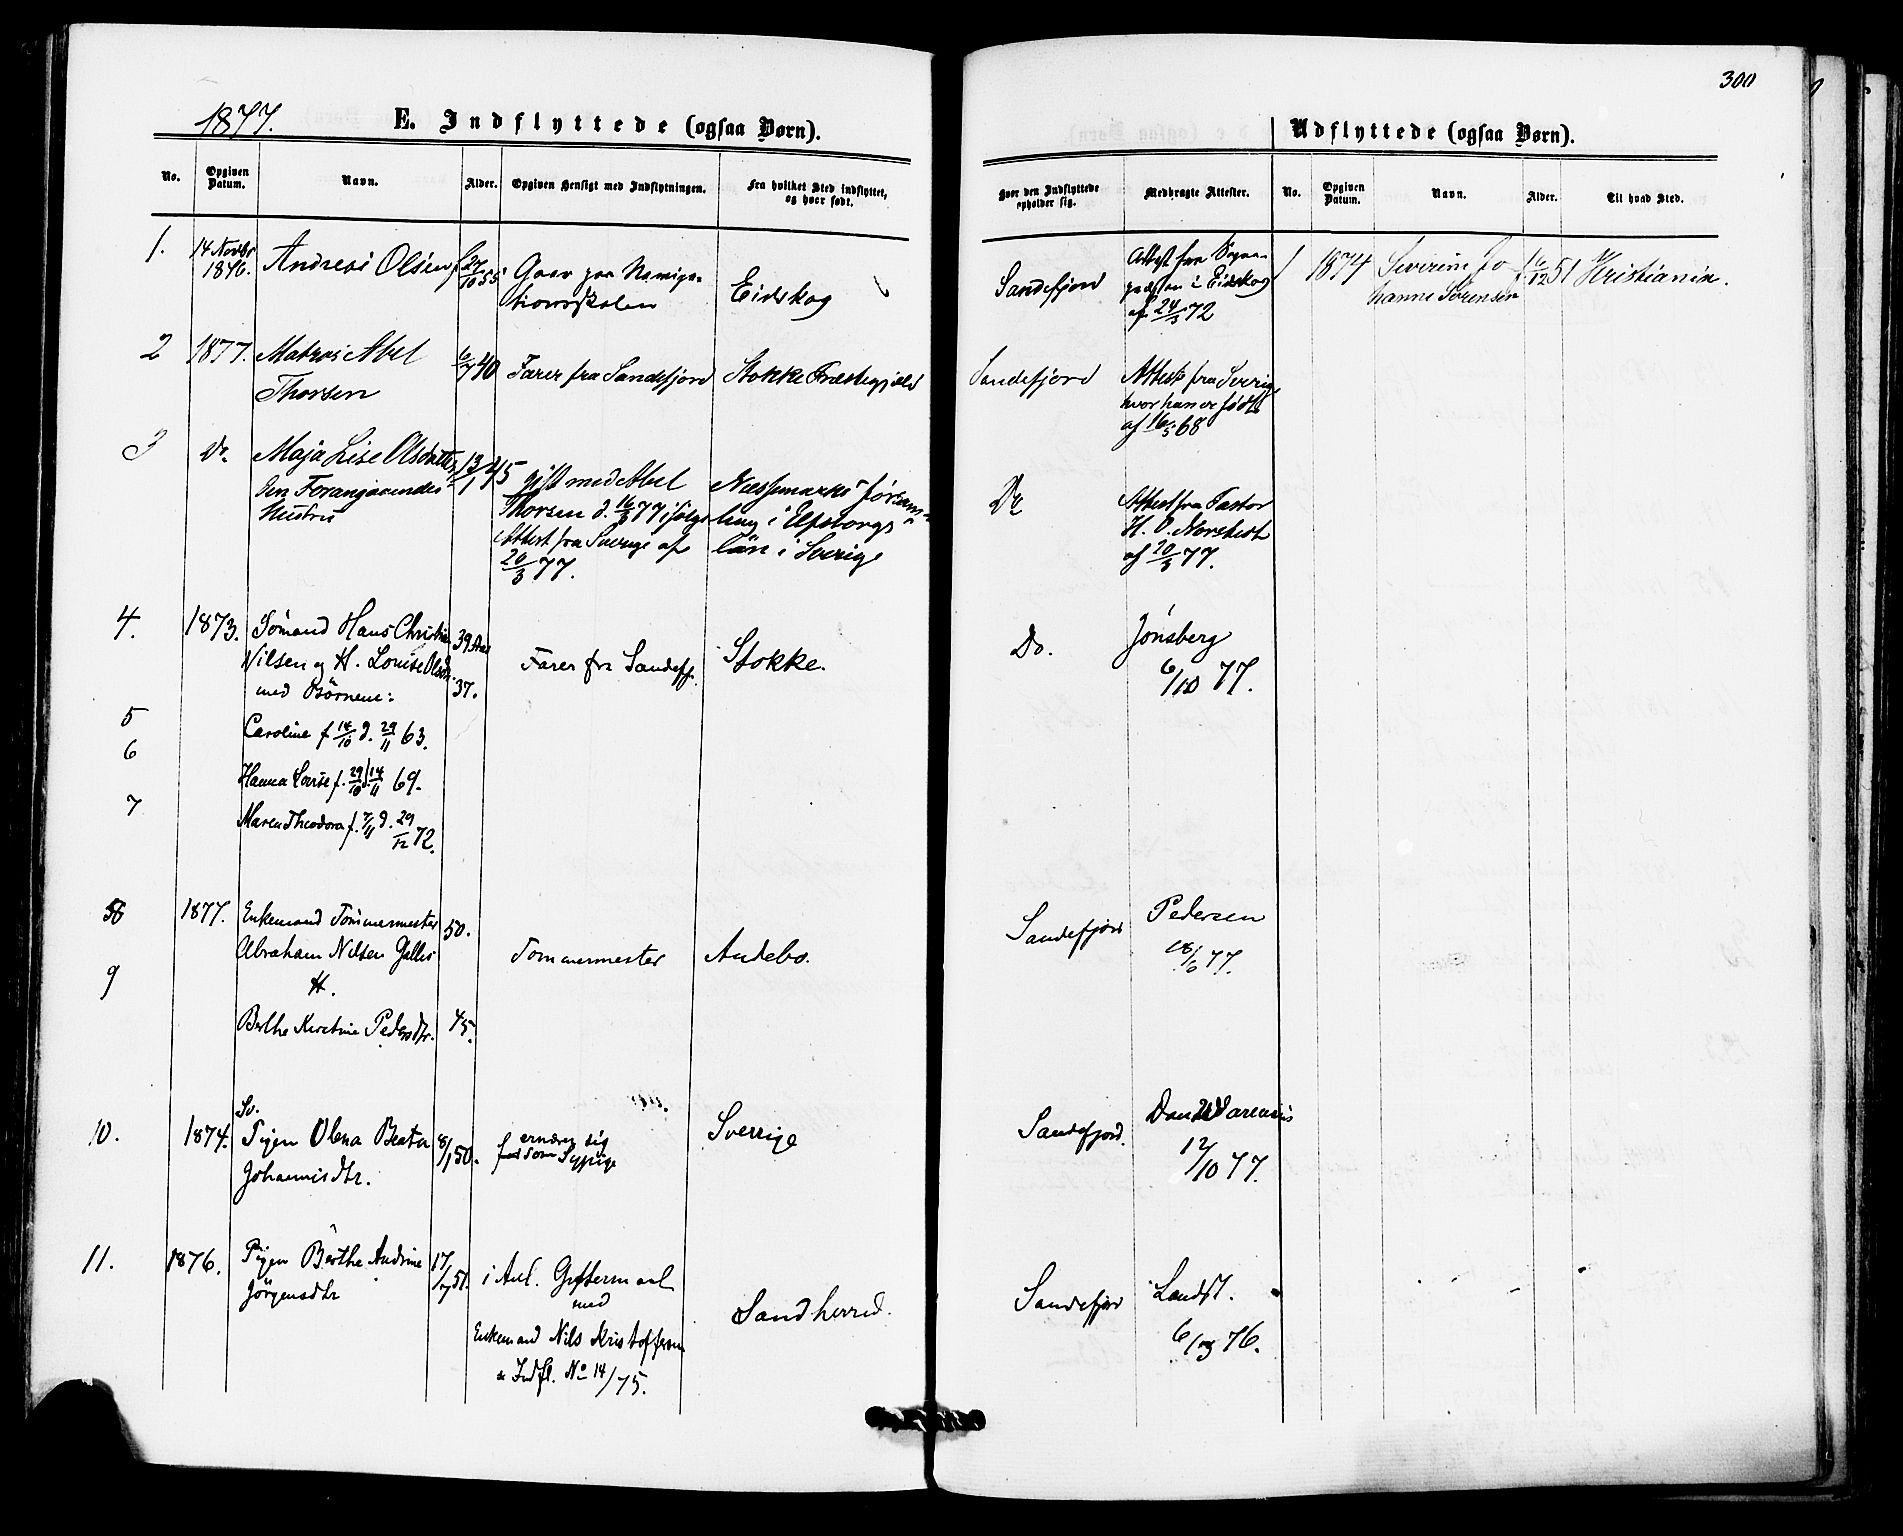 300
1877.
E. Indflyttede (ogsaa Børn).
Udflyttede (ogsaa Børn).
No.
Opgiven Datum.
Navn.
Alder.
Opgiven Hensigt med Indflytningen.
Fra hvilket Sted indflyttet, og hvor født.
Hvor den Indflyttede opholder sig.
Medbragte Attester.
No.
Opgiven Datum.
Navn.
Alder.
Til hvad Sted.
1.
14 Novbr
1876.
Andreas Olsen
f 27/10 55
Gaar paa Naviga-
tionsskolen
Eidskog
Sandefjord
Attest fra Sogne-
præsten i Eidskog
af 24/3 72
1
1874
Severine Jo
hanne Sørensen
f 16/12 51
Kristiania.
2
1877.
Matros Abel
Thorsen
6/7 40
Farer fra Sandefjord
Stokke Præstegjæld
Sandefjord
Attest fra Sverige
hvor han er født
af 16/5 68
3
Do.
Maja Lise Olsdatter
den Forangaaendes
Hustru
13/1 45
gift med Abel
Thorsen d. 16/3 77 ifølge
Attest fra Sverige af
20/3 77.
Næssemarks försam-
ling i Elfsborgs
län i Sverige
Do
Attest fra Pastor
H. O. Norstedt
af 20/3 77.
4.
1873.
Sømand Hans Christian
Nilsen og H. Louise Olsdtr.
med Børnene:
39 Aar
37.
Farer fra Sandefj.
Stokke.
Do.
Jónsberg
6/10 77.
5
Caroline f 14/10 d. 29/11 63.
6
Hanna Lovise f. 29/10 d. 14/11 69.
7
Maren Theodora f. 7/11 d. 29/12 72.
8
1877.
Enkemand Tømmermester
Abraham Nilsen Gallis
H.
50.
Tømmermester
Andebo.
Sandefjord
Pedersen
18/6 77.
9
Berthe Kirstine Pedersdtr.
45.
10.
1874.
Sv.
Pigen Olena Beata
Johannisdtr.
8/1 50.
ernærer sig
som Sypige
Sverrige
Sandefjord.
12/10 77.
11.
1876.
Pigen Berthe Andrine
Jörgensdtr
17/7 51.
i Anl. Giftermaal
med
Enkemand Nils Kristoffersen
Indfl. No 14/75.
Sandherred.
Sandefjor
Landst.
6/3 76.